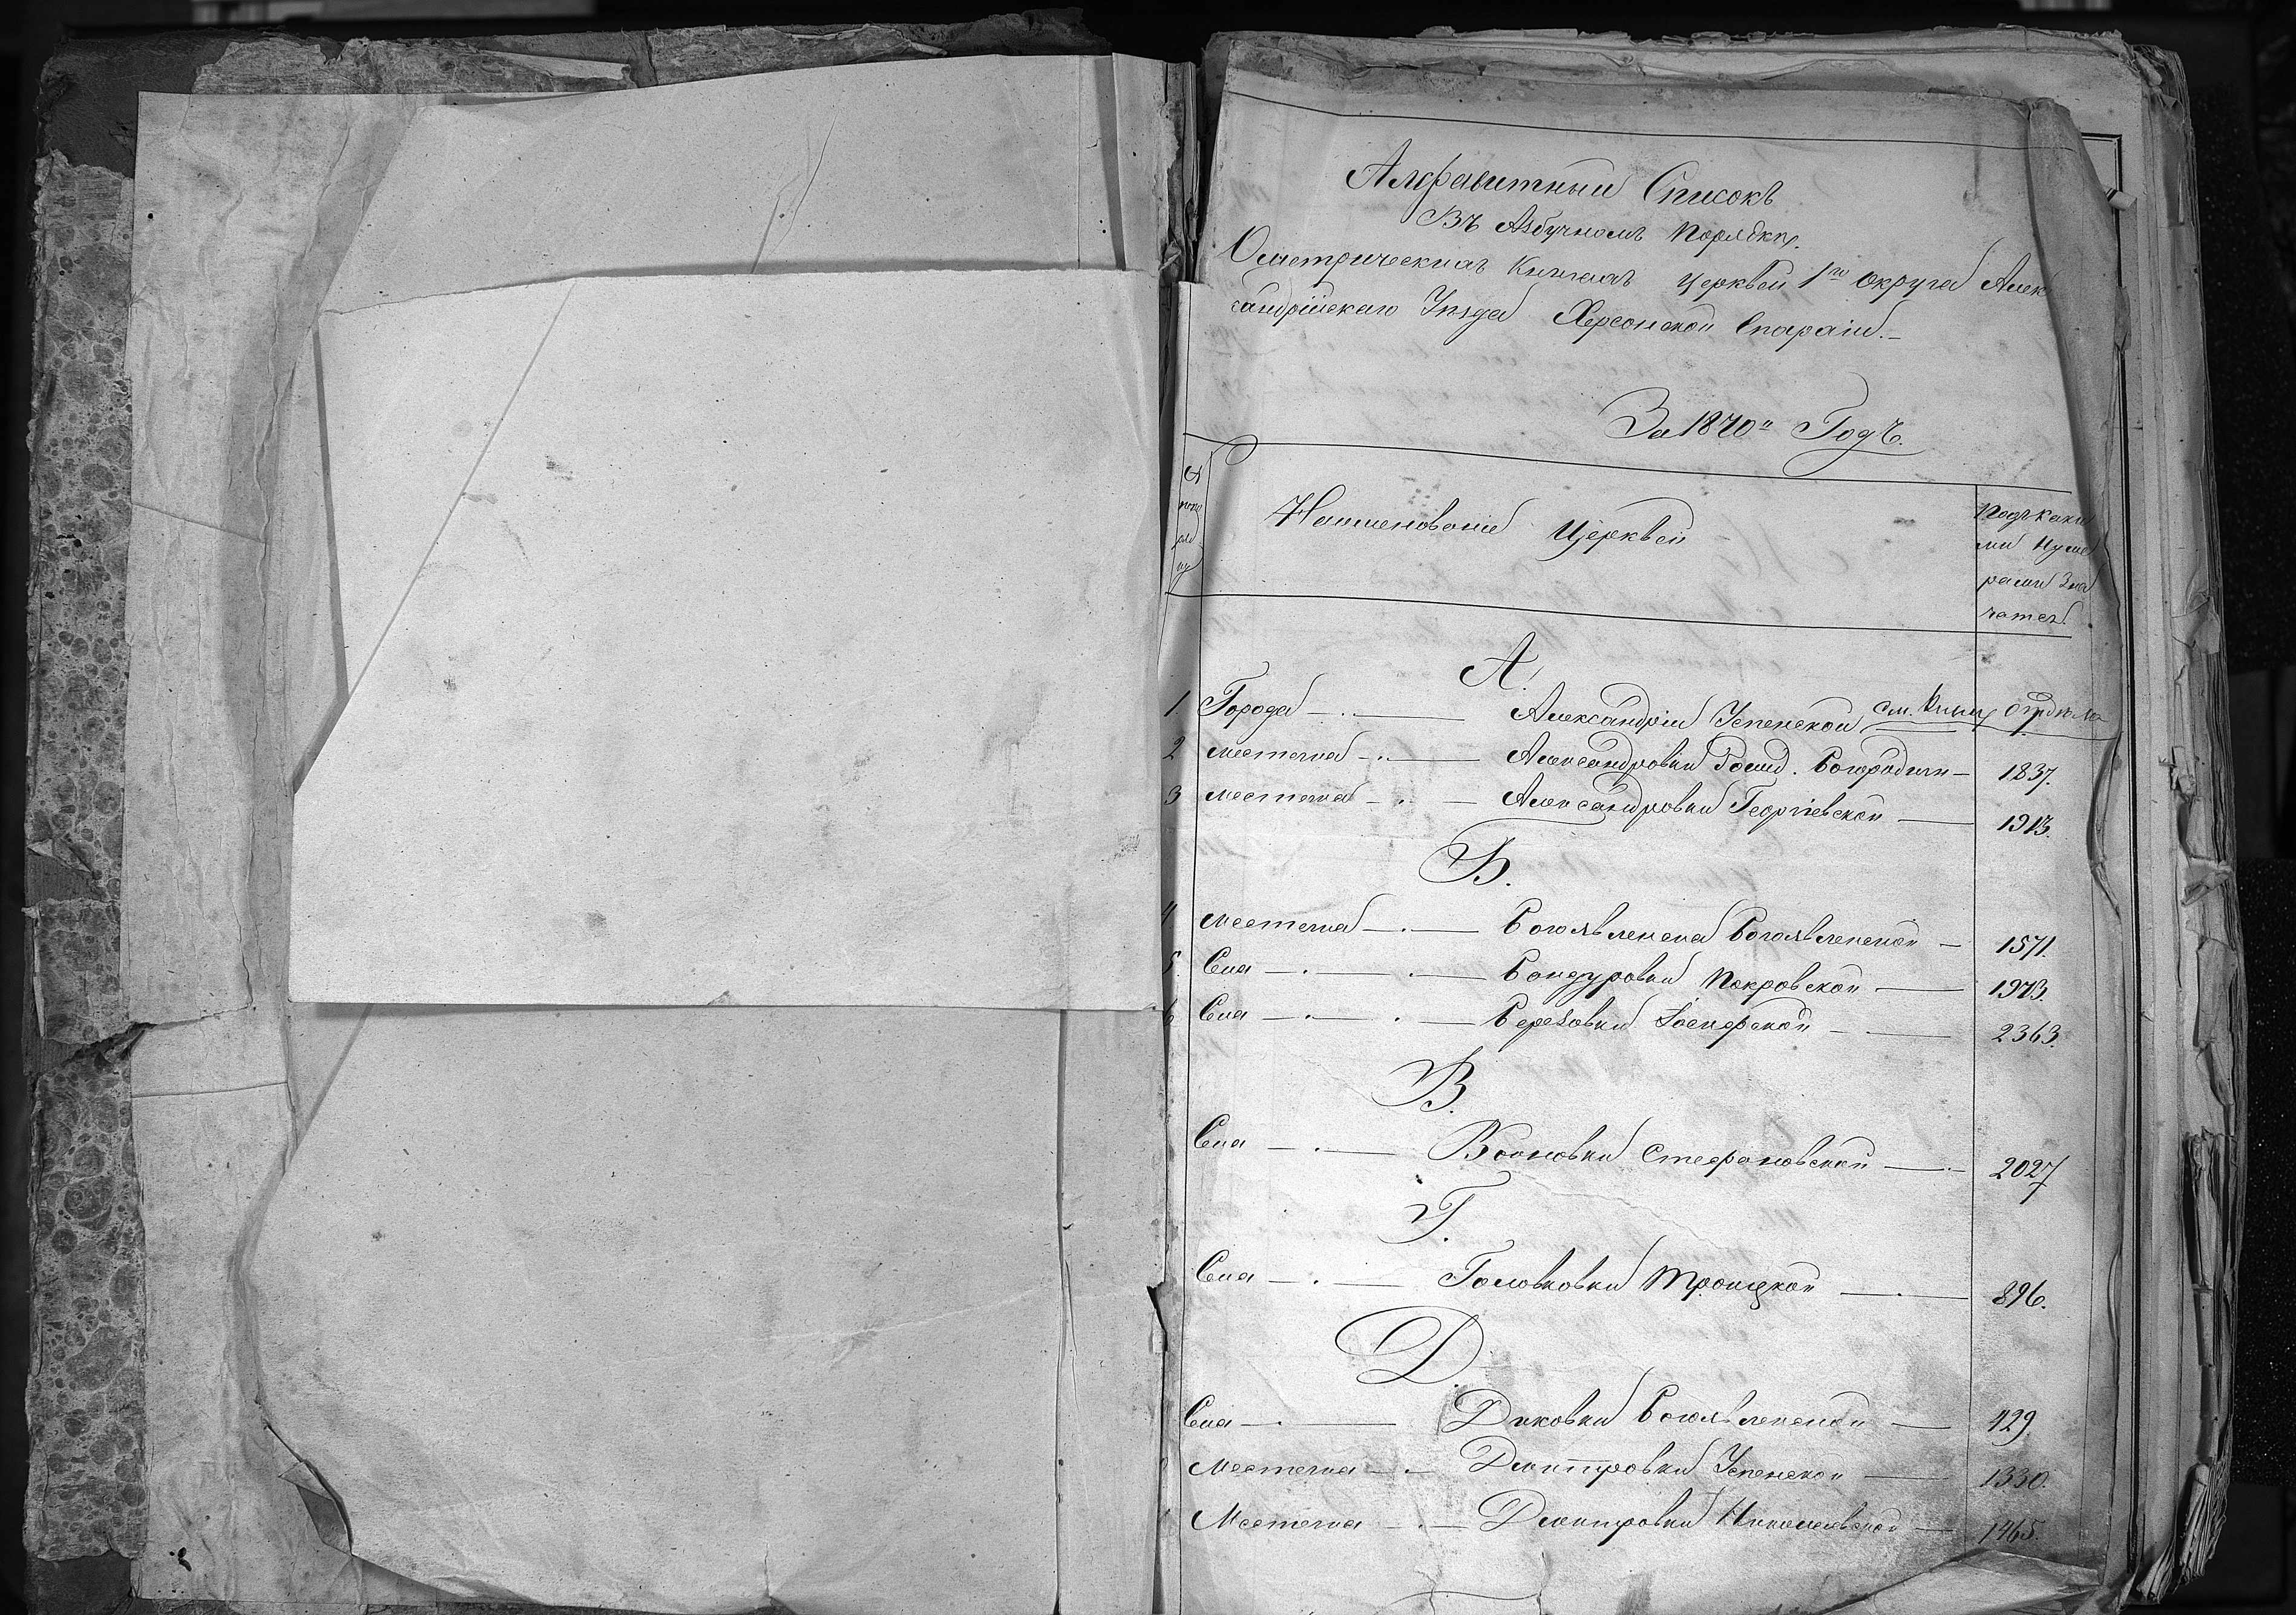 Алфавитный Списокъ
Въ Азбучномъ Порядкѣ.
О метрическихъ Книгахъ церквей 1го округа Алек
сандрійскаго Уѣзда Херсонской Епархіи.
За 1870й Годъ.
№
по по
ряд
ку
Наименованіе Церквей
Подъ каки
ми Нуме
рами Зна
чатся
А.
1. Города Александріи Успенской см. Книгу отдѣльно
2 местечка Александровки Рожд. Богородичн 1837.
3 местечка Александровки Георгіевской 1913.
Б.
4. местечка Богоявленска Богоявленской 1571.
5. Села Бондуровки Покровской 1973.
6 Села Березовки Іосифской 2363.
В.
Села Войновки Стефановской 2027
Г.
Села Головковки Троицкой 896.
Д.
Села Диковки Богоявленской 429.
Местечка Дмитровки Успенской 1330.
Местечка Дмитровки Николаевской 1465.